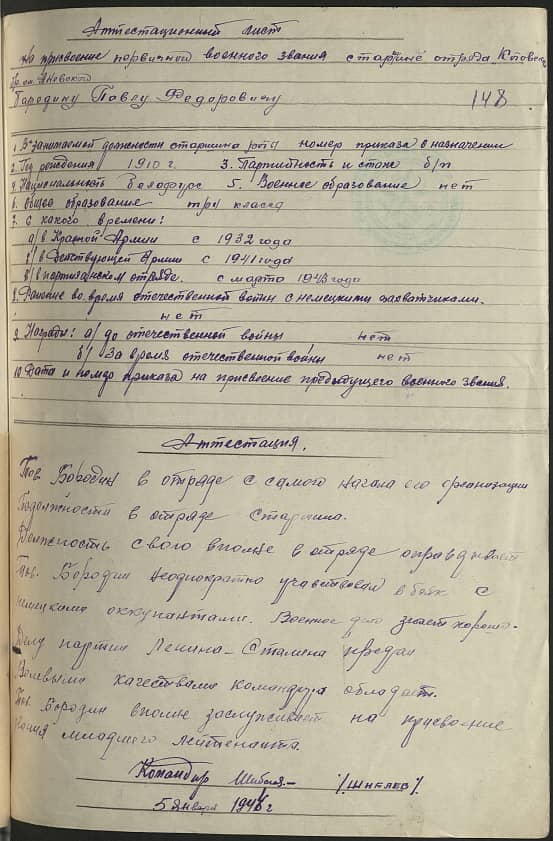 Аттестационный лист
на присвоение первичной военного звания старшине отряда
Бородину Павлу Федоровичу
148
1. В занимаемой должности старшина номер приказа о назначении
2. Год рождения 1910 г. 3. Партийность и стаж б/п
4. Национальность Белоруус 5. Военное образование нет
6. Общее образование три класса
7. С какого времени:
а/ в Красной Армии с 1932 года
в Действующей Армии с 1941 года
в/ в партизанском отряде. с марта 1943 года
8. Ранение во время отечественной войн с немецкими захватчиками.
нет
9. Награды: а/ до отечественной войны нет
б/ За время отечественной войны нет
10. Дата и приказа на присвоение предыдущего военного звания.
Аттестация.
Тов. Бородин в отряде с самого начала его организации
в отряде Старшина.
Должность свого вполне в отряде оправдывает
Тов. Бородин неоднократно участвовал в боях с
немецкими оккупантами. Военное дело знает хорошо.
Делу партии Ленина-Сталина предан
Волевыми качествами командира обладает.
Тов. Бородин вполне заслуживает на присвоение
звания младшего лейтенанта.
Командир /Шикаев/.
5 января 1944 г